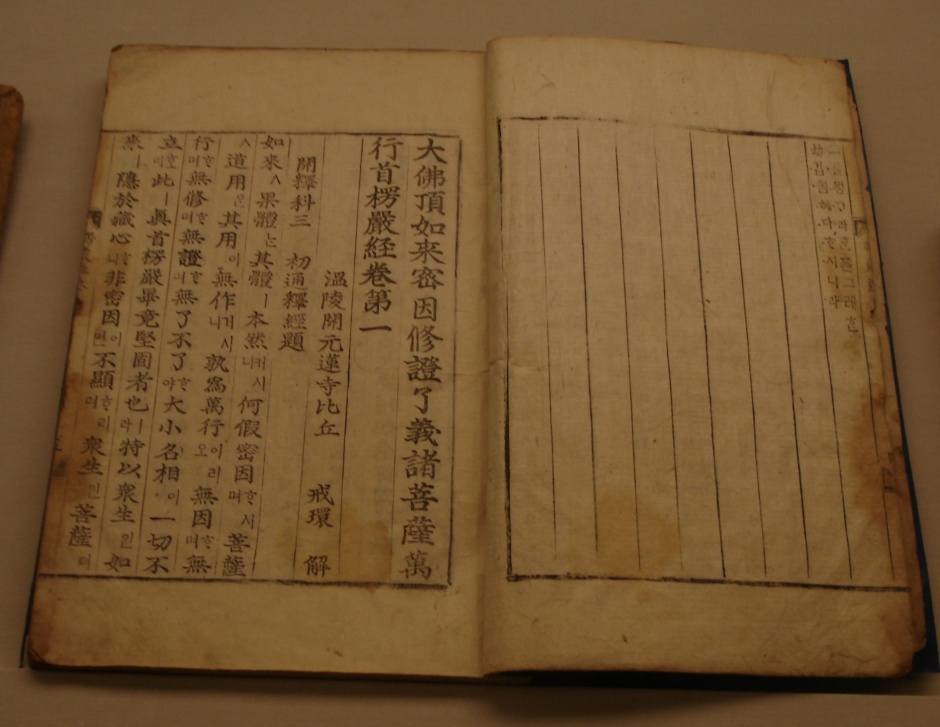 大佛頂如来宻因修證了義諸菩薩萬
行首楞嚴経卷第一
溫陵開元蓮寺比丘 戒環 解
開釋科三 初通釋經題
如來ㅅ果體ᄂᆞᆫ其體ㅣ本然커시니何假密因ᄒᆞ시며菩薩
ㅅ道用ᄋᆞᆫ其用이無作거시니孰爲萬行이리오無因ᄒᆞ며無
行ᄒᆞ며無修ᄒᆞ며無證ᄒᆞ며無了不了ᄒᆞ야大小名相이一切不
立호미此ㅣ眞首楞嚴畢竟堅固者也ㅣ라特以衆生인如
來ㅣ隱於藏心ᄒᆞ니非密因이면不顯ᄒᆞ리며衆生인菩薩이